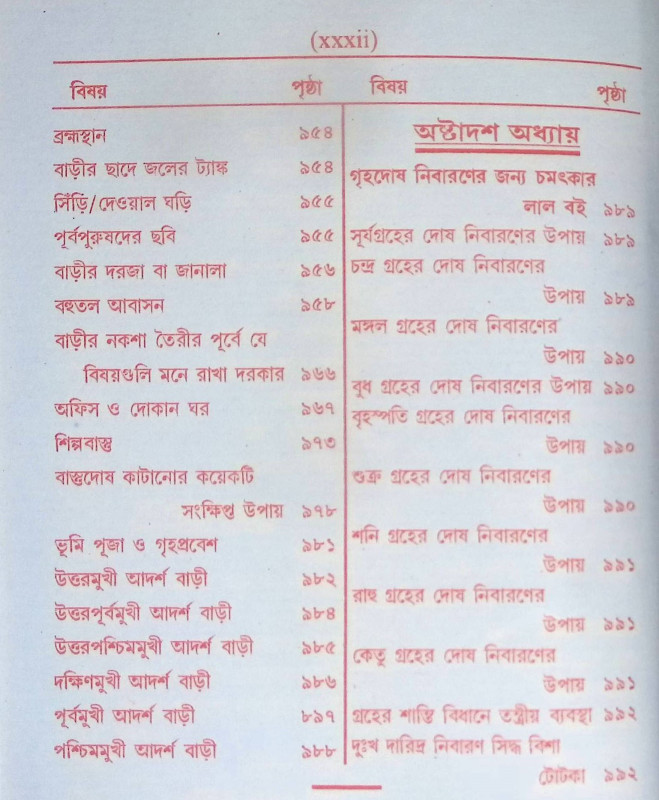 (xxxii)
বিষয় পৃষ্ঠা
ব্রহ্মস্থান ৯৫৪
বাড়ীর ছাদে জলের ট্যাঙ্ক ৯৫৪
সিঁড়ি/দেওয়াল ঘড়ি ৯৫৫
পূর্বপুরুষদের ছবি ৯৫৫
বাড়ীর দরজা বা জানালা ৯৫৬
বহুতল আবাসন ৯৫৮
বাড়ীর নকশা তৈরীর পূর্বে যে
বিষয়গুলি মনে রাখা দরকার ৯৬৬
অফিস ও দোকান ঘর ৯৬৭
শিল্পবাস্তু ৯৭৩
বাস্তুদোষ কাটানোর কয়েকটি
সংক্ষিপ্ত উপায় ৯৭৮
ভূমি পূজা ও গৃহপ্রবেশ ৯৮১
উত্তরমুখী আদর্শ বাড়ী ৯৮২
উত্তরপূর্বমুখী আদর্শ বাড়ী ৯৮৪
উত্তরপশ্চিমমুখী আদর্শ বাড়ী ৯৮৫
দক্ষিণমুখী আদর্শ বাড়ী ৯৮৬
পূর্বমুখী আদর্শ বাড়ী ৮৯৭
পশ্চিমমুখী আদর্শ বাড়ী ৯৮৮
বিষয় পৃষ্ঠা
অষ্টাদশ অধ্যায়
গৃহদোষ নিবারণের জন্য চমৎকার
লাল বই ৯৮৯
সূর্যগ্রহের দোষ নিবারণের উপায় ৯৮৯
চন্দ্র গ্রহের দোষ নিবারণের
উপায় ৯৮৯
মঙ্গল গ্রহের দোষ নিবারণের
উপায় ৯৯০
বুধ গ্রহের দোষ নিবারণের উপায় ৯৯০
বৃহস্পতি গ্রহের দোষ নিবারণের
উপায় ৯৯০
শুক্র গ্রহের দোষ নিবারণের
উপায় ৯৯০
শনি গ্রহের দোষ নিবারণের
উপায় ৯৯১
রাহু গ্রহের দোষ নিবারণের
উপায় ৯৯১
কেতু গ্রহের দোষ নিবারণের
উপায় ৯৯১
গ্রহের শান্তি বিধানে তন্ত্রীয় ব্যবস্থা ৯৯২
দুঃখ দারিদ্র নিবারণ সিদ্ধ বিশা
টোটকা ৯৯২